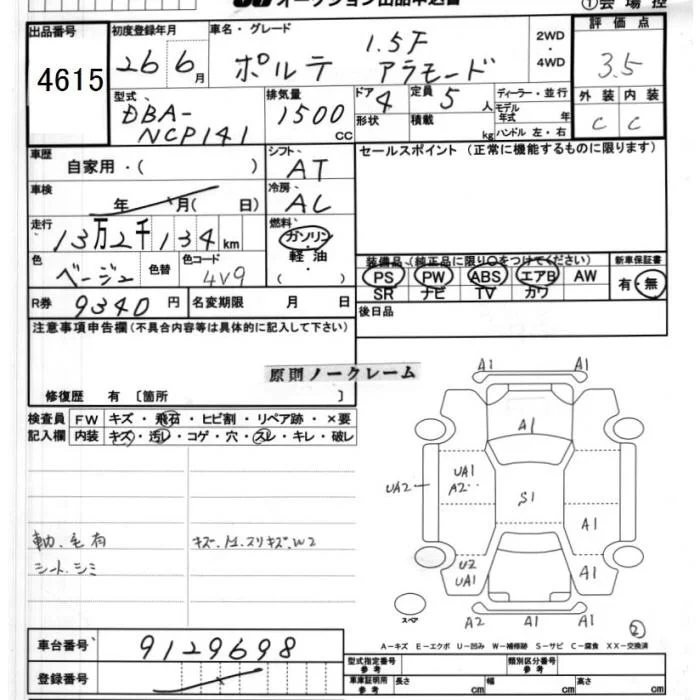 オークション出品申込書 ①会場控
出品番号 初度登録年月 車名・グレード 評価点
4615 26年6月 ポルテ 1.5F アラモード 2WD・4WD 3.5
型式 排気量 ドア 定員 ディーラー・並行 外装 内装
DBA-NCP141 1500CC 4 5人 モデル年式 年 C C
形状 積載 kg ハンドル 左・右
車歴 シフト セールスポイント (正常に機能するものに限ります)
自家用・( ) AT
車検 冷房
年 月( 日) AC
走行 燃料
13万2千134km ガソリン・軽油・( )
色 色替 色コード 装備品(純正品に限り○をつけてください) 新車保証書
ベージュ 4V9 PS PW ABS エアB AW 有・無
SR ナビ TV カワ
R券 9340円 名変期限 月 日 後日品
注意事項申告欄(不具合内容等は具体的に記入して下さい)
原則ノークレーム
修復歴 有 [箇所 ]
検査員 FW キズ・飛石・ヒビ割・リペア跡・×要
記入欄 内装 キズ・汚レ・コゲ・穴・スレ・キレ・破レ
A1 A1
A1
UA1
A2
UA2
S1
A1
U2
UA1
A1
A2 A1
スペア
②
動.毛有
シート.シミ
A-キズ E-エクボ U-凹み W-補修跡 S-サビ C-腐食 XX-交換済
車台番号 9129698
登録番号
型式指定番号 参考 類別区分番号 参考
車庫証明用 参考 長さ cm 幅 cm 高さ cm